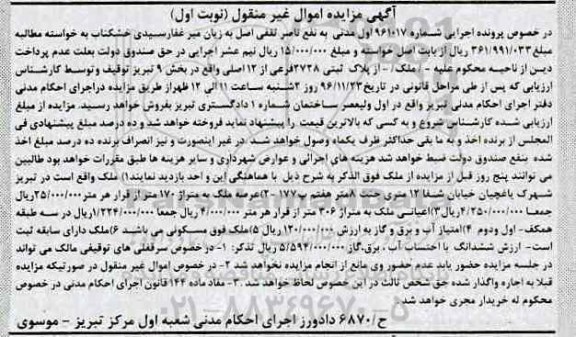 آگهی مزایده اموال غیر منقول (نوبت اول)
در خصوص پرونده اجرایی شماره ۹۶۱۰۱۷ اول مدنی به نفع ناصر ثقفی اصل به زیان میر غفارسیدی خشکناب به خواسته مطالبه
مبلغ ۳۶۱/۹۹۱/۰۳۳ ریال از بابت اصل خواسته و مبلغ ۱۵/۰۰۰/۰۰۰ ریال نیم عشر اجرایی در حق صندوق دولت بعلت عدم پرداخت
دین از ناحیه محکوم علیه - ملک/ - از پلاک ثبتی ۲۷۳۸فرعی از ۱۲اصلی واقع در بخش ۹ تبریز توقیف وتوسط کارشناس
ارزیابی که پس از طی مراحل قانونی در تاریخ۹۶/۱۱/۲۳ روز ۲شنبه ساعت ۱۱ الی ۱۲ ظهراز طریق مزایده دراجرای احکام مدنی
دفتر اجرای احکام مدنی تبریز واقع در اول ولیعصر ساختمان شماره ۱ دادگستری تبریز بفروش خواهد رسید. مزایده از مبلغ
ارزیابی شده کارشناس شروع و به کسی که بالاترین قیمت را پیشنهاد نماید فروخته خواهد شد و ده درصد مبلغ پیشنهادی فی
المجلس از برنده اخذ و به ما بقی حداکثر ظرف یکماه وصول خواهد شد. در غیر اینصورت و نیز انصراف برنده ده درصد مبلغ اخذ
شده بنفع صندوق دولت ضبط خواهد شد هزینه های اجرائی و عوارض شهرداری و سایر هزینه ها طبق مقررات خواهد بود طالبین
می توانند پنج روز قبل از مزایده از ملک فوق الذکر به شرح ذیل با هماهنگی این و احد بازدید نمایند۱) ملک واقع است در تبریز
شهرک باغچیان خیابان شفا ۱۲ متری جنت ۸متر هفتم پ۱۷۷ ۲)عرصه ملک به متراژ ۱۷۰ متر از قرار هر متر ۲۵/۰۰۰/۰۰۰ریال
جمعا ۴/۲۵۰/۰۰۰/۰۰۰ریال ۳)اعیانی ملک به متراژ ۳۰۶ متر از قرار هر متر ۴/۰۰۰/۰۰۰ ریال جمعا ۱/۲۲۴/۰۰۰/۰۰۰ریال در سه طبقه
همکف- اول ودوم ۴)امتیاز آب و برق و گاز به ارزش ۱۲۰/۰۰۰/۰۰۰ ریال ۵)ملک فوق مسکونی می باشد ۶)ملک دارای سابقه ثبت
است- ارزش ششدانگ با احتساب آب ، برق،گاز ۵/۵۹۴/۰۰۰/۰۰۰ ریال تذکر: ۱-در خصوص سرقفلی های توقیفی مالک می تواند
در جلسه مزایده حضور یابد عدم حضور وی مانع از انجام مزایده نخواهد شد ۲- در خصوص اموال غیر منقول در صورتیکه مزایده
قبلا به اجاره واگذار شده حق شخص ثالث در این خصوص لحاظ خواهد شد. ۳-مفاد ماده ۱۴۴ قانون اجرای احکام مدنی در خصوص
محکوم له خریدار مجری خواهد شد.
ح/۶۸۷۰ دادورز اجرای احکام مدنی شعبه اول مرکز تبریز - موسوی
۰۲۱-۸۸۳۴۹۶۷۰-۵